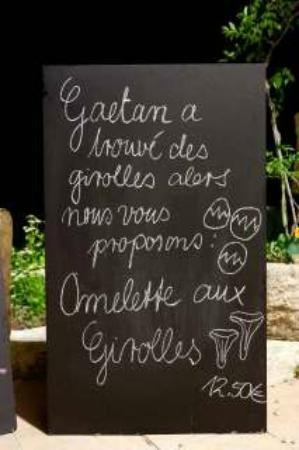 Gaetan a
trouvé des
girolles alors
nous vous
proposons :
Omelette aux
Girolles
12.50€